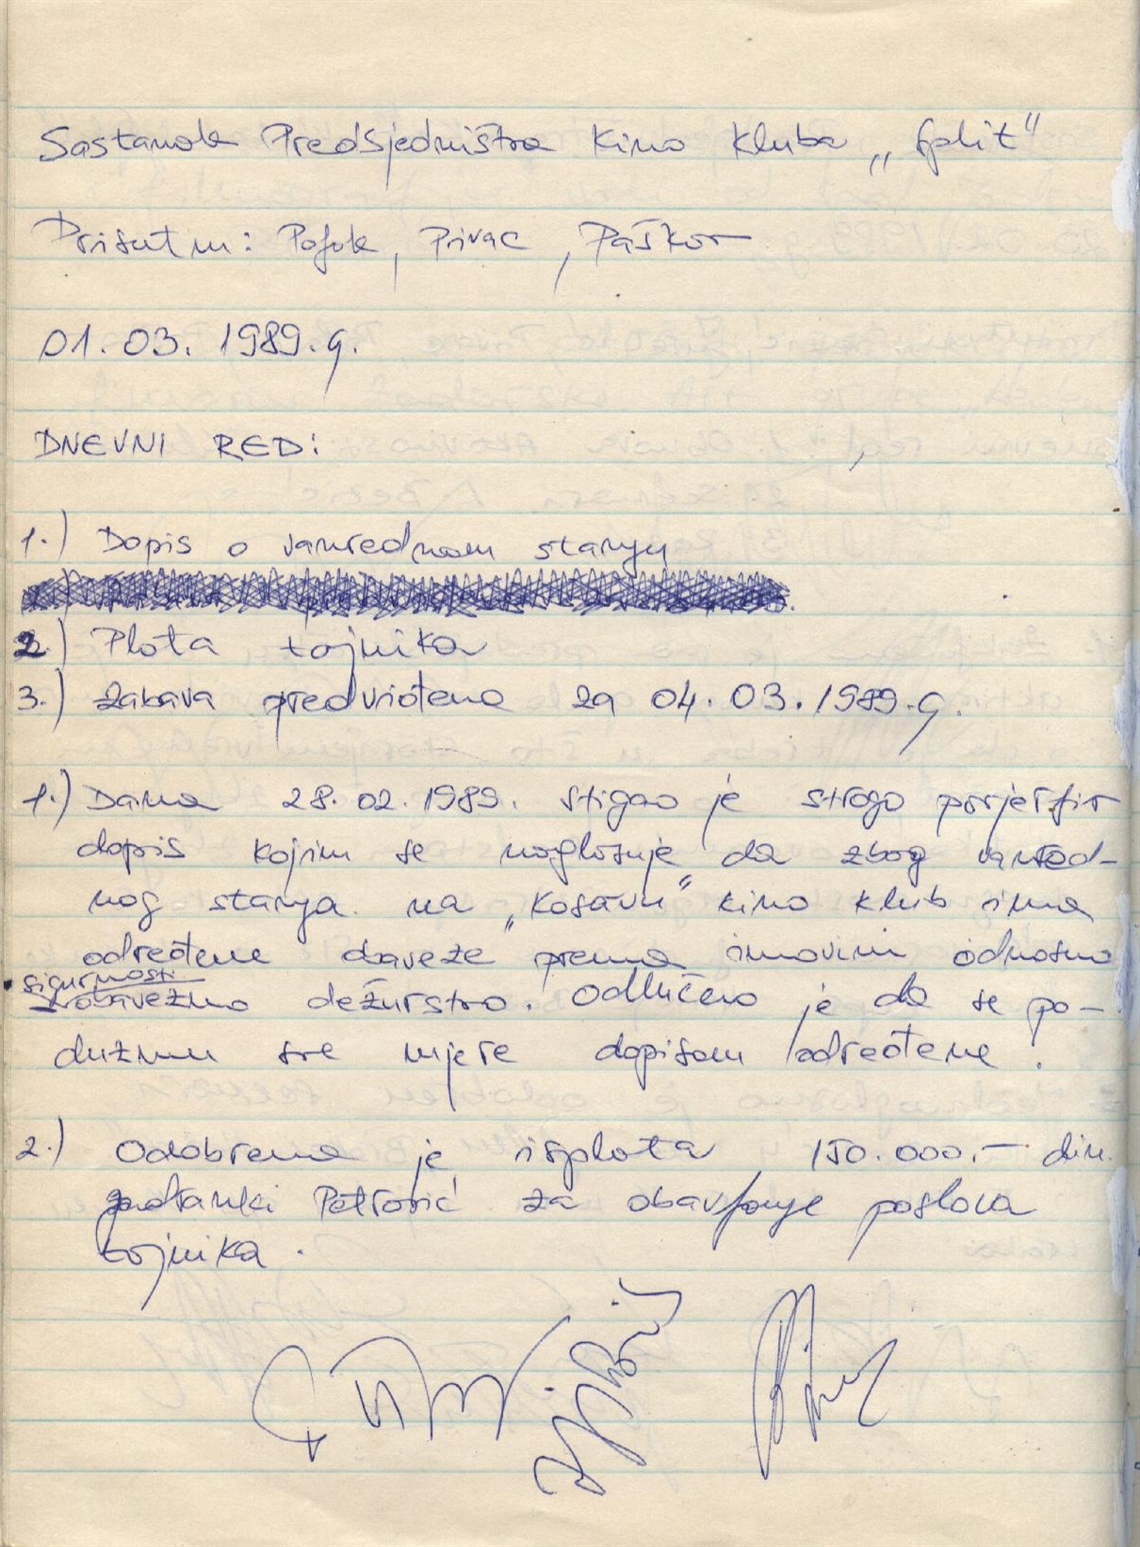 Sastanak Predsjedništva Kino Kluba „Split"
Prisutni: Poljak, Privac, Paškov
01.03.1989.g.
DNEVNI RED:
1.) Dopis o vanrednom stanju
2.) Plaća tajnika
3.) Zabava predviđena za 04.03.1989.g.
1.) Dana 28.02.1989. stigao je strogo povjerljiv
dopis kojim se naglašuje da zbog vanred-
nog stanja na „Kosovu" kino klub ima
određene obaveze prema imovini odnosno
sigurnosti
obavezno dežurstvo. Odlučeno je da se po-
duzmu sve mjere dopisom određene.
2.) Odobrena je isplata 150.000.- din.
Petrović za obavljanje poslova
tajnika.